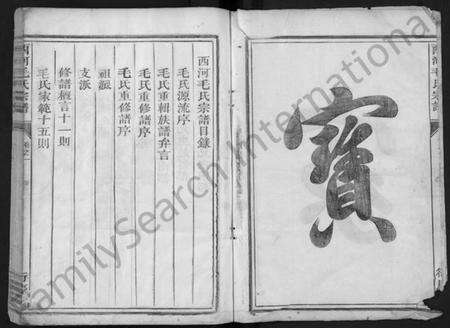 寶
西河毛氏宗譜
西河毛氏宗譜目錄
毛氏源流序
毛氏重輯族譜弁言
毛氏重修譜序
毛氏重修譜序
祖派
支派
修譜 言十一則
毛氏家統十五則
西河毛氏宗譜
FamilySearch International